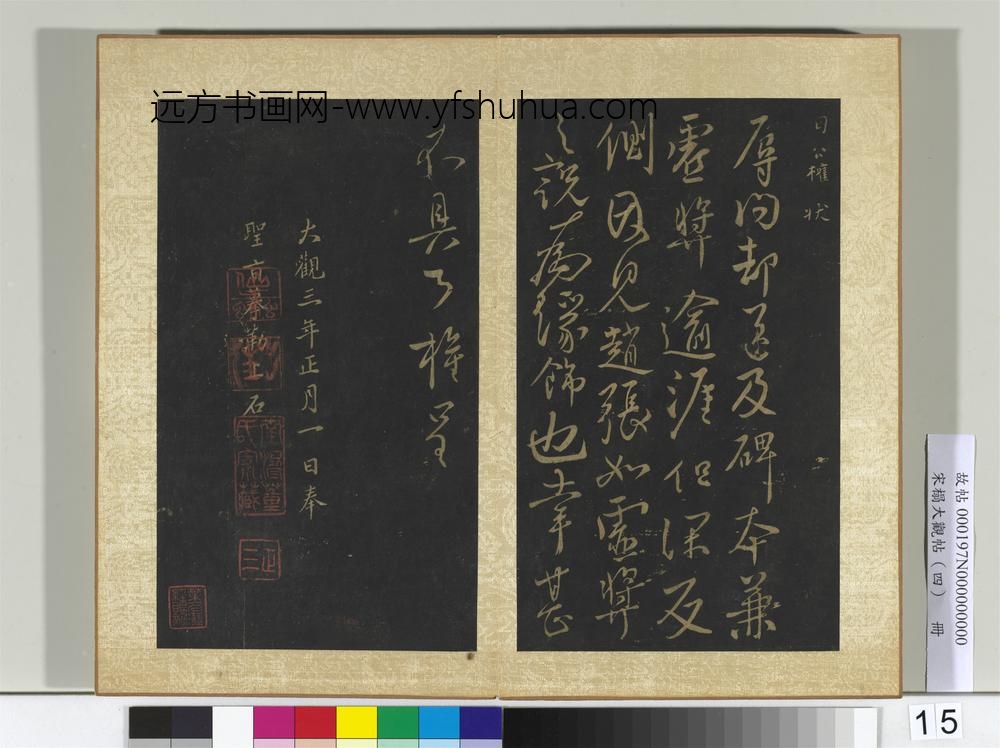 远方书画网-www.yfshuhua.com
日公權状
辱问却送及碑本兼
虛奬逾涯但深反
側因見趙張如虛奬
之説為緣飾也幸甚
不具公權呈
大觀三年正月一日奉
聖旨摹勒上石
故帖 000197N000000000
宋榻大觀帖（四） 冊
15